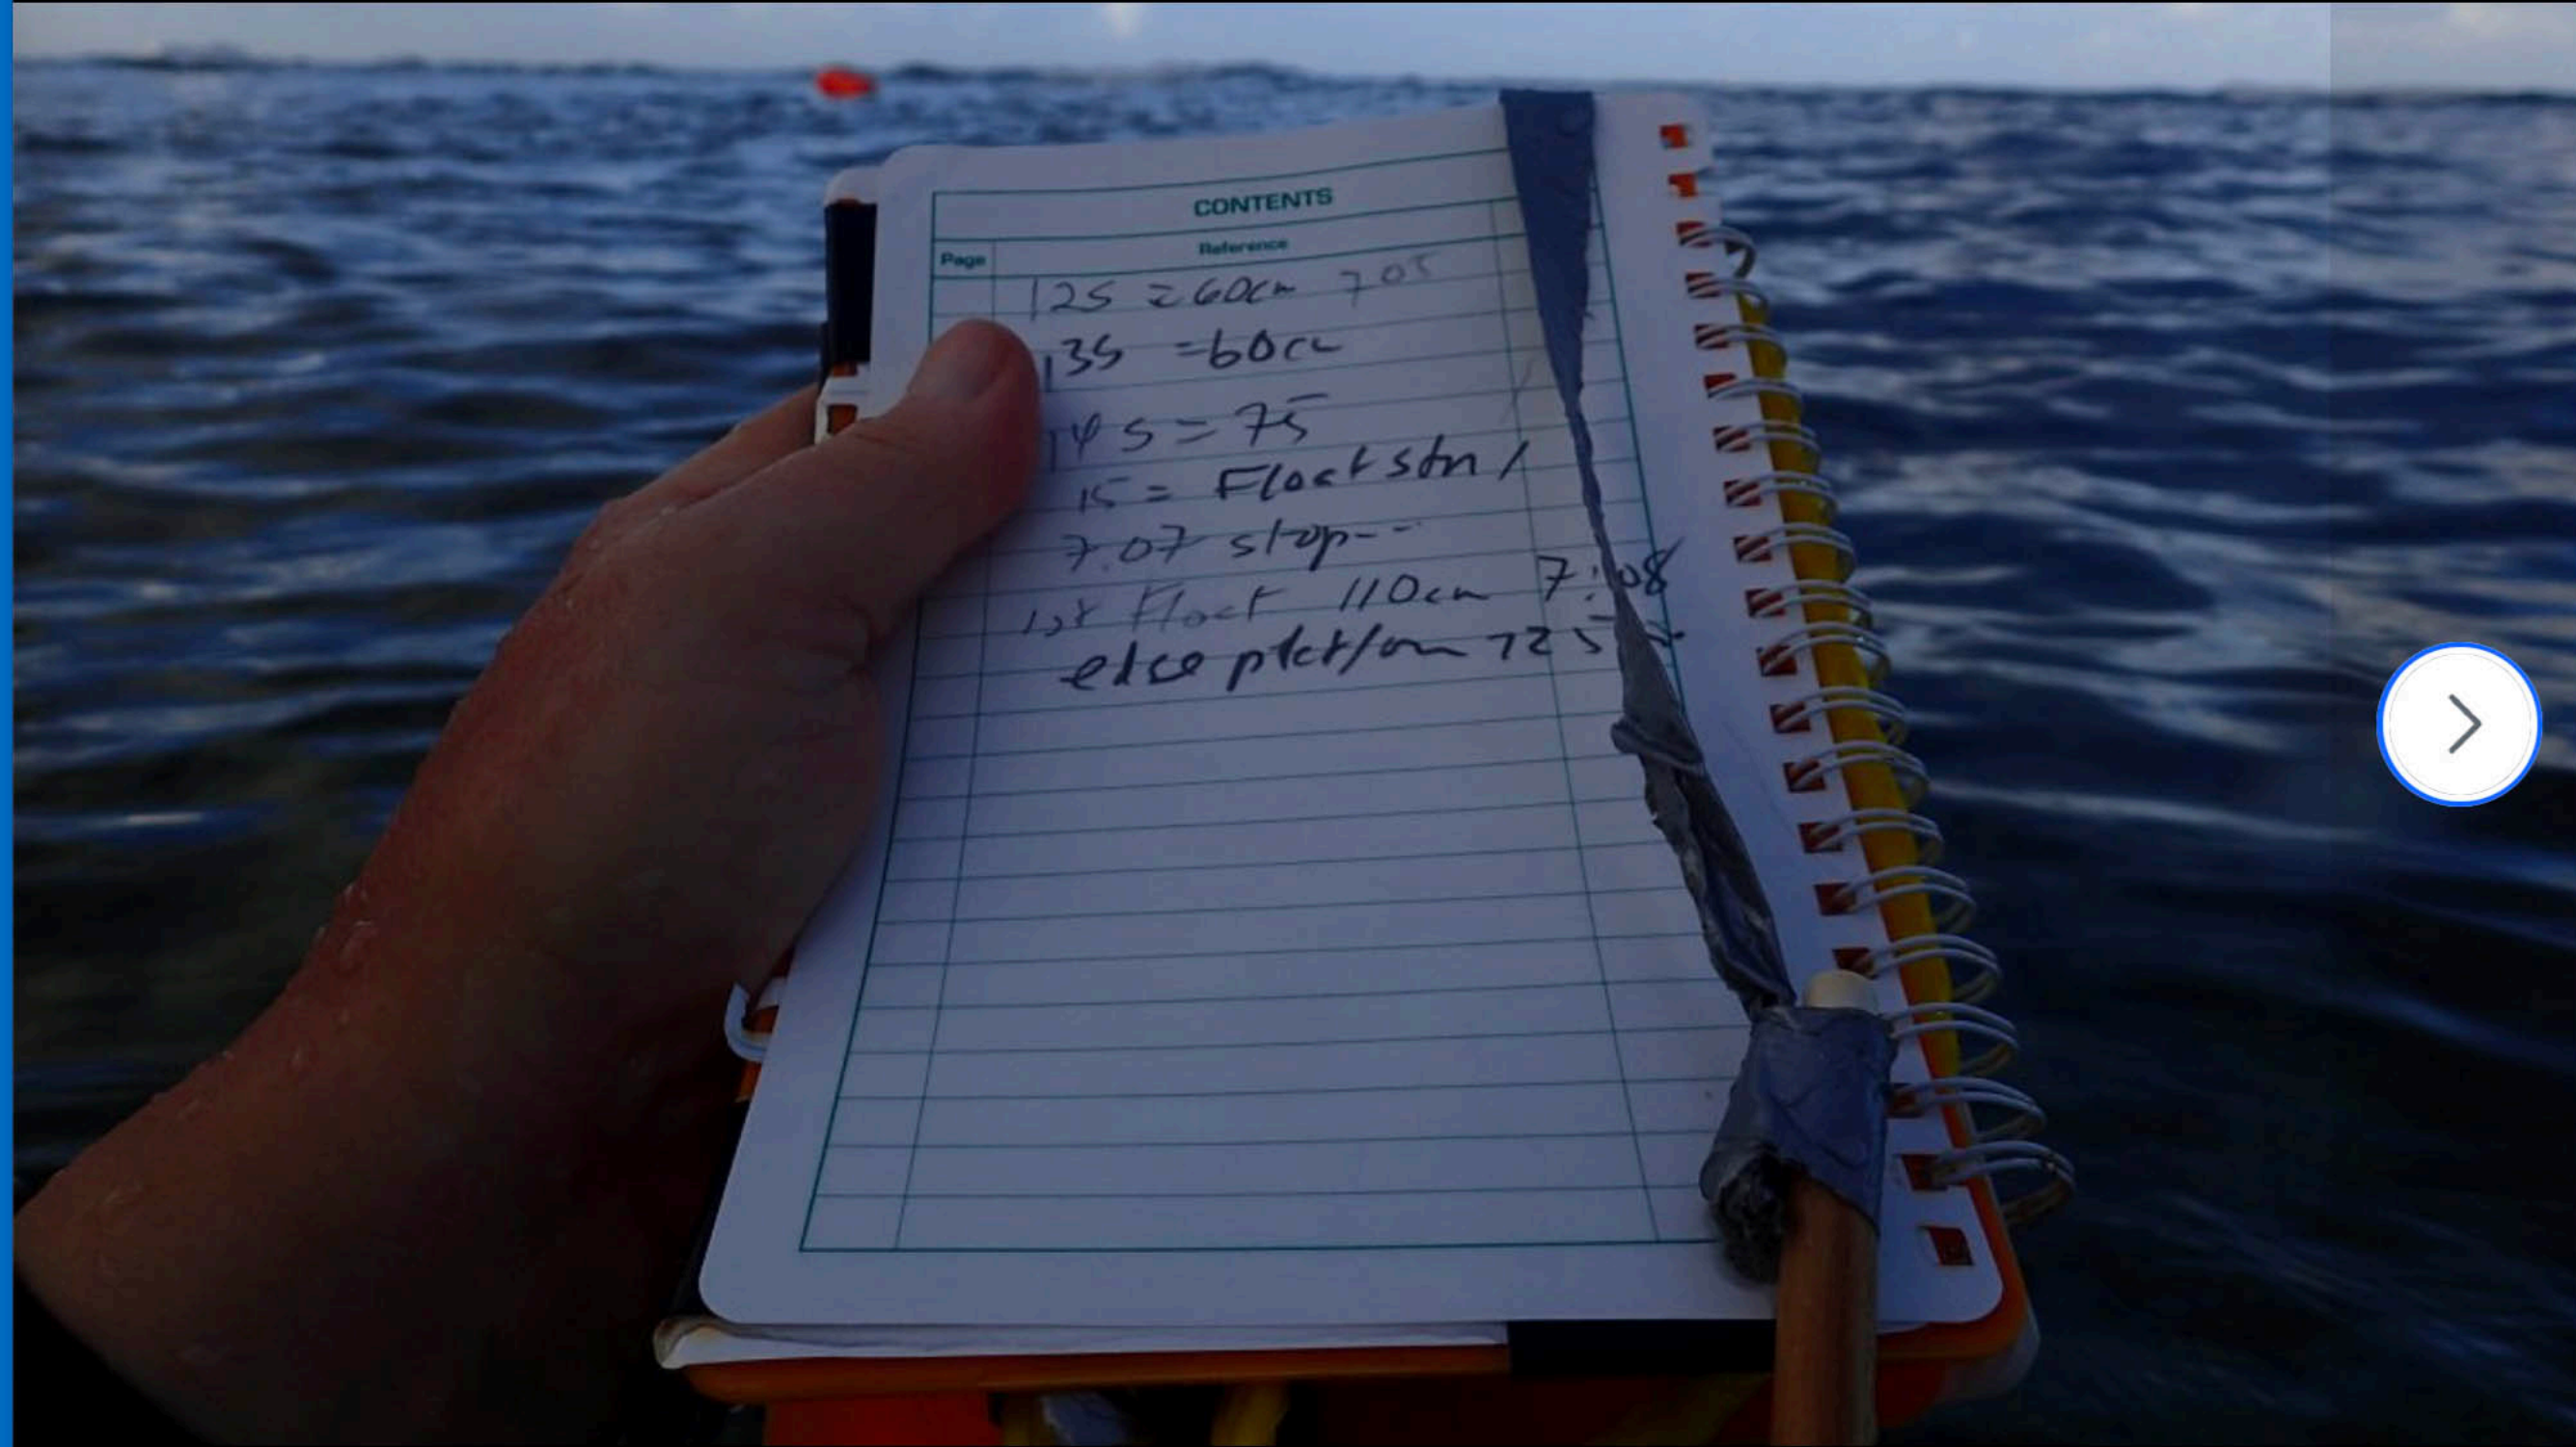 CONTENTS
Page Reference
125 = 60cm 705
135 = 60cm
145 = 75
15 = Float stn 1
7.07 stop--
Float 110cm 7:08
edge platform 725